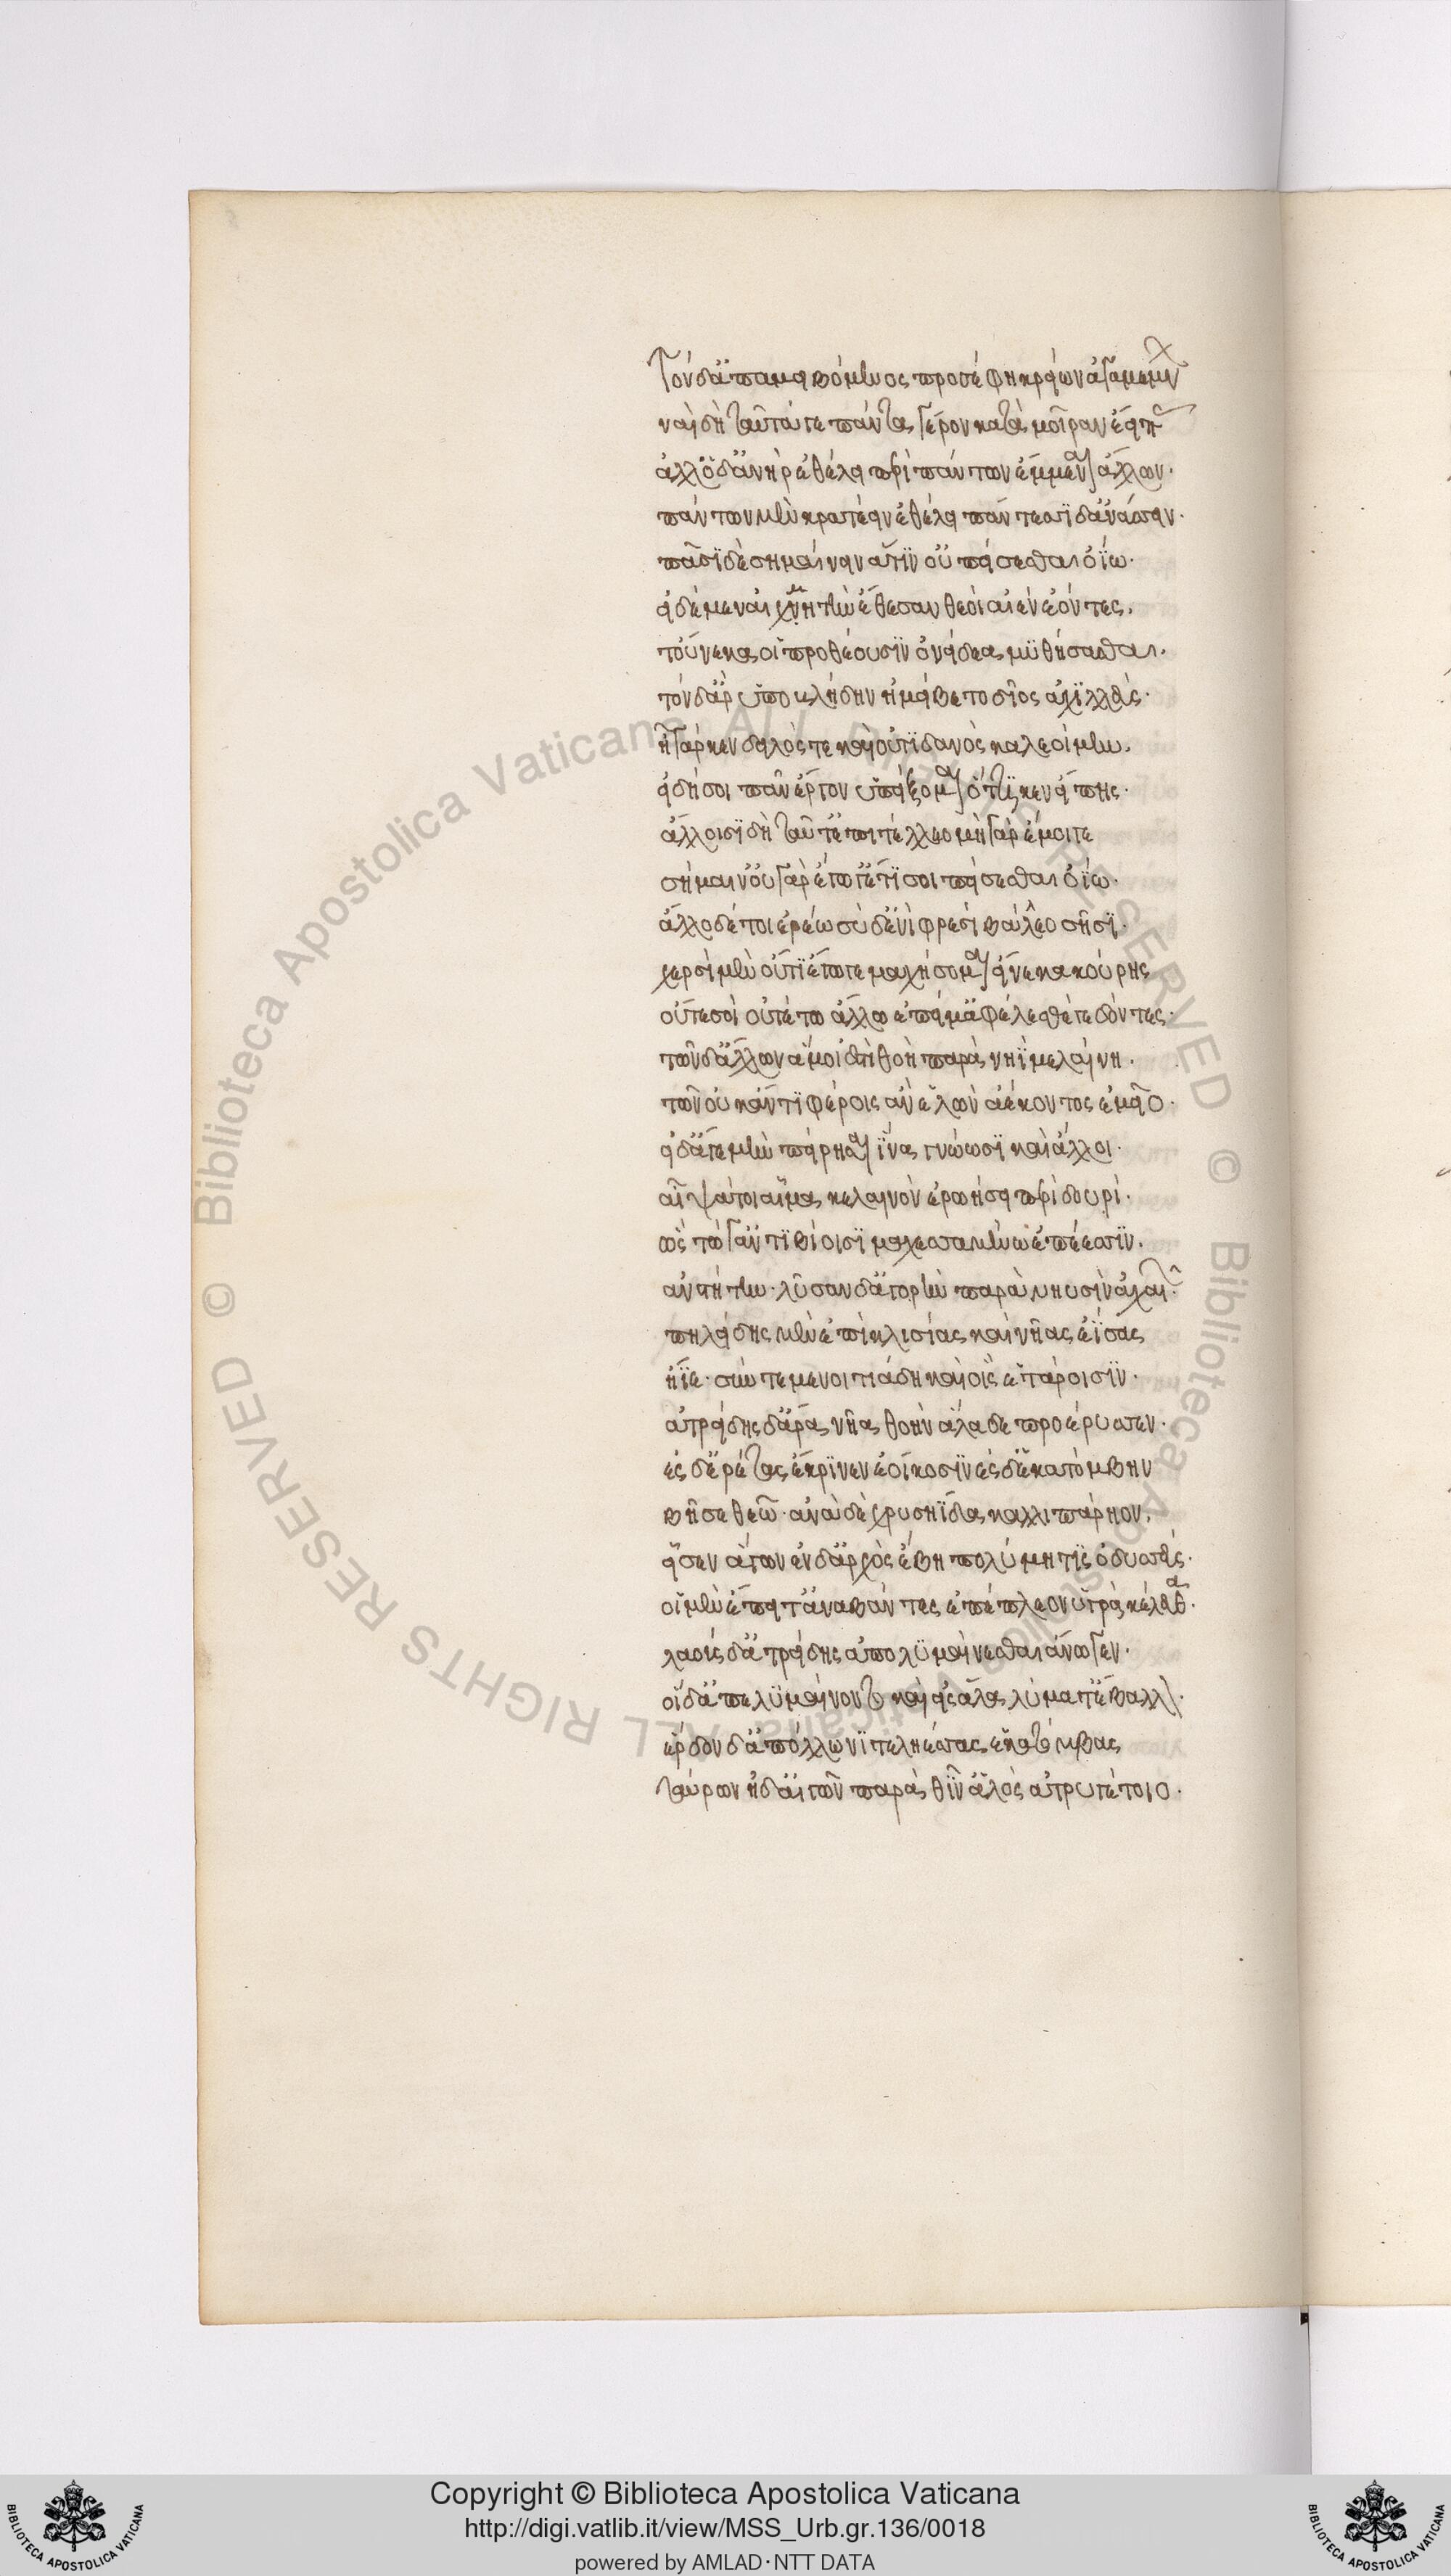 Τὸν δ' ἀπαμειβόμενος προσέφη κρείων ἀγαμέμνων
ναὶ δὴ ταῦτά γε πάντα γέρον κατὰ μοῖραν ἔειπες
ἀλλ' ὅδ' ἀνὴρ ἐθέλει περὶ πάντων ἔμμεναι ἄλλων·
πάντων μὲν κρατέειν ἐθέλει πάντεσϊ δ' ἀνάσσειν·
πᾶσϊ δὲ σημαίνειν ἅτϊν' οὐ πείσεσθαι ὀΐω·
εἰ δέ μιν αἰχμητὴν ἔθεσαν θεοὶ αἰὲν ἐόντες.
τοὔνεκα οἱ προθέουσϊν ὀνείδεα μϋθήσασθαι.
τὸν δ' ἄρ' ὑποβλήδην ἠμείβετο δῖος ἀχϊλλεύς·
ἦ γάρ κεν δειλός τε καὶ οὐτϊδανὸς καλεοίμην.
εἰ δή σοι πᾶν ἔργον ὑπείξομαι ὅττϊ κεν εἴπης·
ἄλλοισϊ δὴ ταῦτ' ἐπιτέλλεο μὴ γὰρ ἔμοιγε
σήμαιν' οὐ γὰρ ἔγωγ' ἔτϊ σοι πείσεσθαι ὀΐω·
ἄλλο δέ τοι ἐρέω σὺ δ' ἐνὶ φρεσὶ βάλλεο σῇσϊ·
χερσὶ μὲν οὔτϊ ἔγωγε μαχήσομαι εἵνεκα κούρης
οὔτε σοὶ οὔτέ τω ἄλλω ἐπεί μ' ἀφέλεσθέ γε δόντες·
τῶν δ' ἄλλων ἅ μοι ἐστὶ θοῇ παρὰ νηῒ μελαίνη·
τῶν οὐκ ἄν τϊ φέροις ἀνελὼν ἀέκοντος ἐμεῖο·
εἰ δ' ἄγε μὴν πείρησαι ἵνα γνώωσϊ καὶ ἄλλοι·
αἶψά τοι αἷμα κελαινὸν ἐρωήσει περὶ δουρί·
ὣς τώ γ' ἀντϊβίοισϊ μαχεσσαμένω ἐπέεσσϊν.
ἀνστήτην· λῦσαν δ' ἀγορὴν παρὰ νηυσὶν ἀχαιῶν·
πηλείδης μὲν ἐπὶ κλισίας καὶ νῆας ἐΐσας
ἤϊε· σύν τε μενοιτιάδη καὶ οἷς ἑτάροισϊν·
ἀτρείδης δ' ἄρα νῆα θοὴν ἅλαδε προέρυσσεν·
ἐς δ' ἐρέτας ἔκρϊνεν ἐείκοσϊν ἐς δ' ἑκατόμβην
βῆσε θεῶ· ἀνὰ δὲ χρυσηΐδα καλλιπάρηον.
εἷσεν ἄγων ἐν δ' ἀρχὸς ἔβη πολύμητϊς ὀδυσσεύς·
οἱ μὲν ἔπειτ' ἀναβάντες ἐπέπλεον ὑγρὰ κέλευθα·
λαοὺς δ' ἀτρείδης ἀπολϋμαίνεσθαι ἄνωγεν·
οἱ δ' ἀπελϋμαίνοντο καὶ εἰς ἅλα λύματ' ἔβαλλον·
ἔρδον δ' ἀπόλλωνϊ τεληέσσας ἑκατόμβας
ταύρων ἠδ' αἰγῶν παρὰ θῖν' ἁλὸς ἀτρυγέτοιο·
Copyright © Biblioteca Apostolica Vaticana
http://digi.vatlib.it/view/MSS_Urb.gr.136/0018
powered by AMLAD·NTT DATA